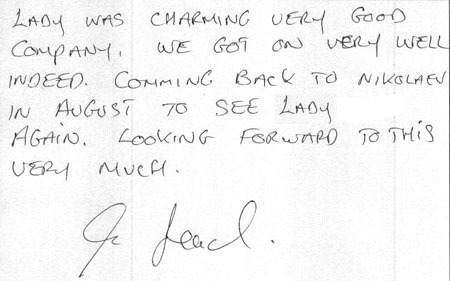 LADY WAS CHARMING VERY GOOD
COMPANY. WE GOT ON VERY WELL
INDEED. COMMING BACK TO NIKOLAEV
IN AUGUST TO SEE LADY
AGAIN. LOOKING FORWARD TO THIS
VERY MUCH.